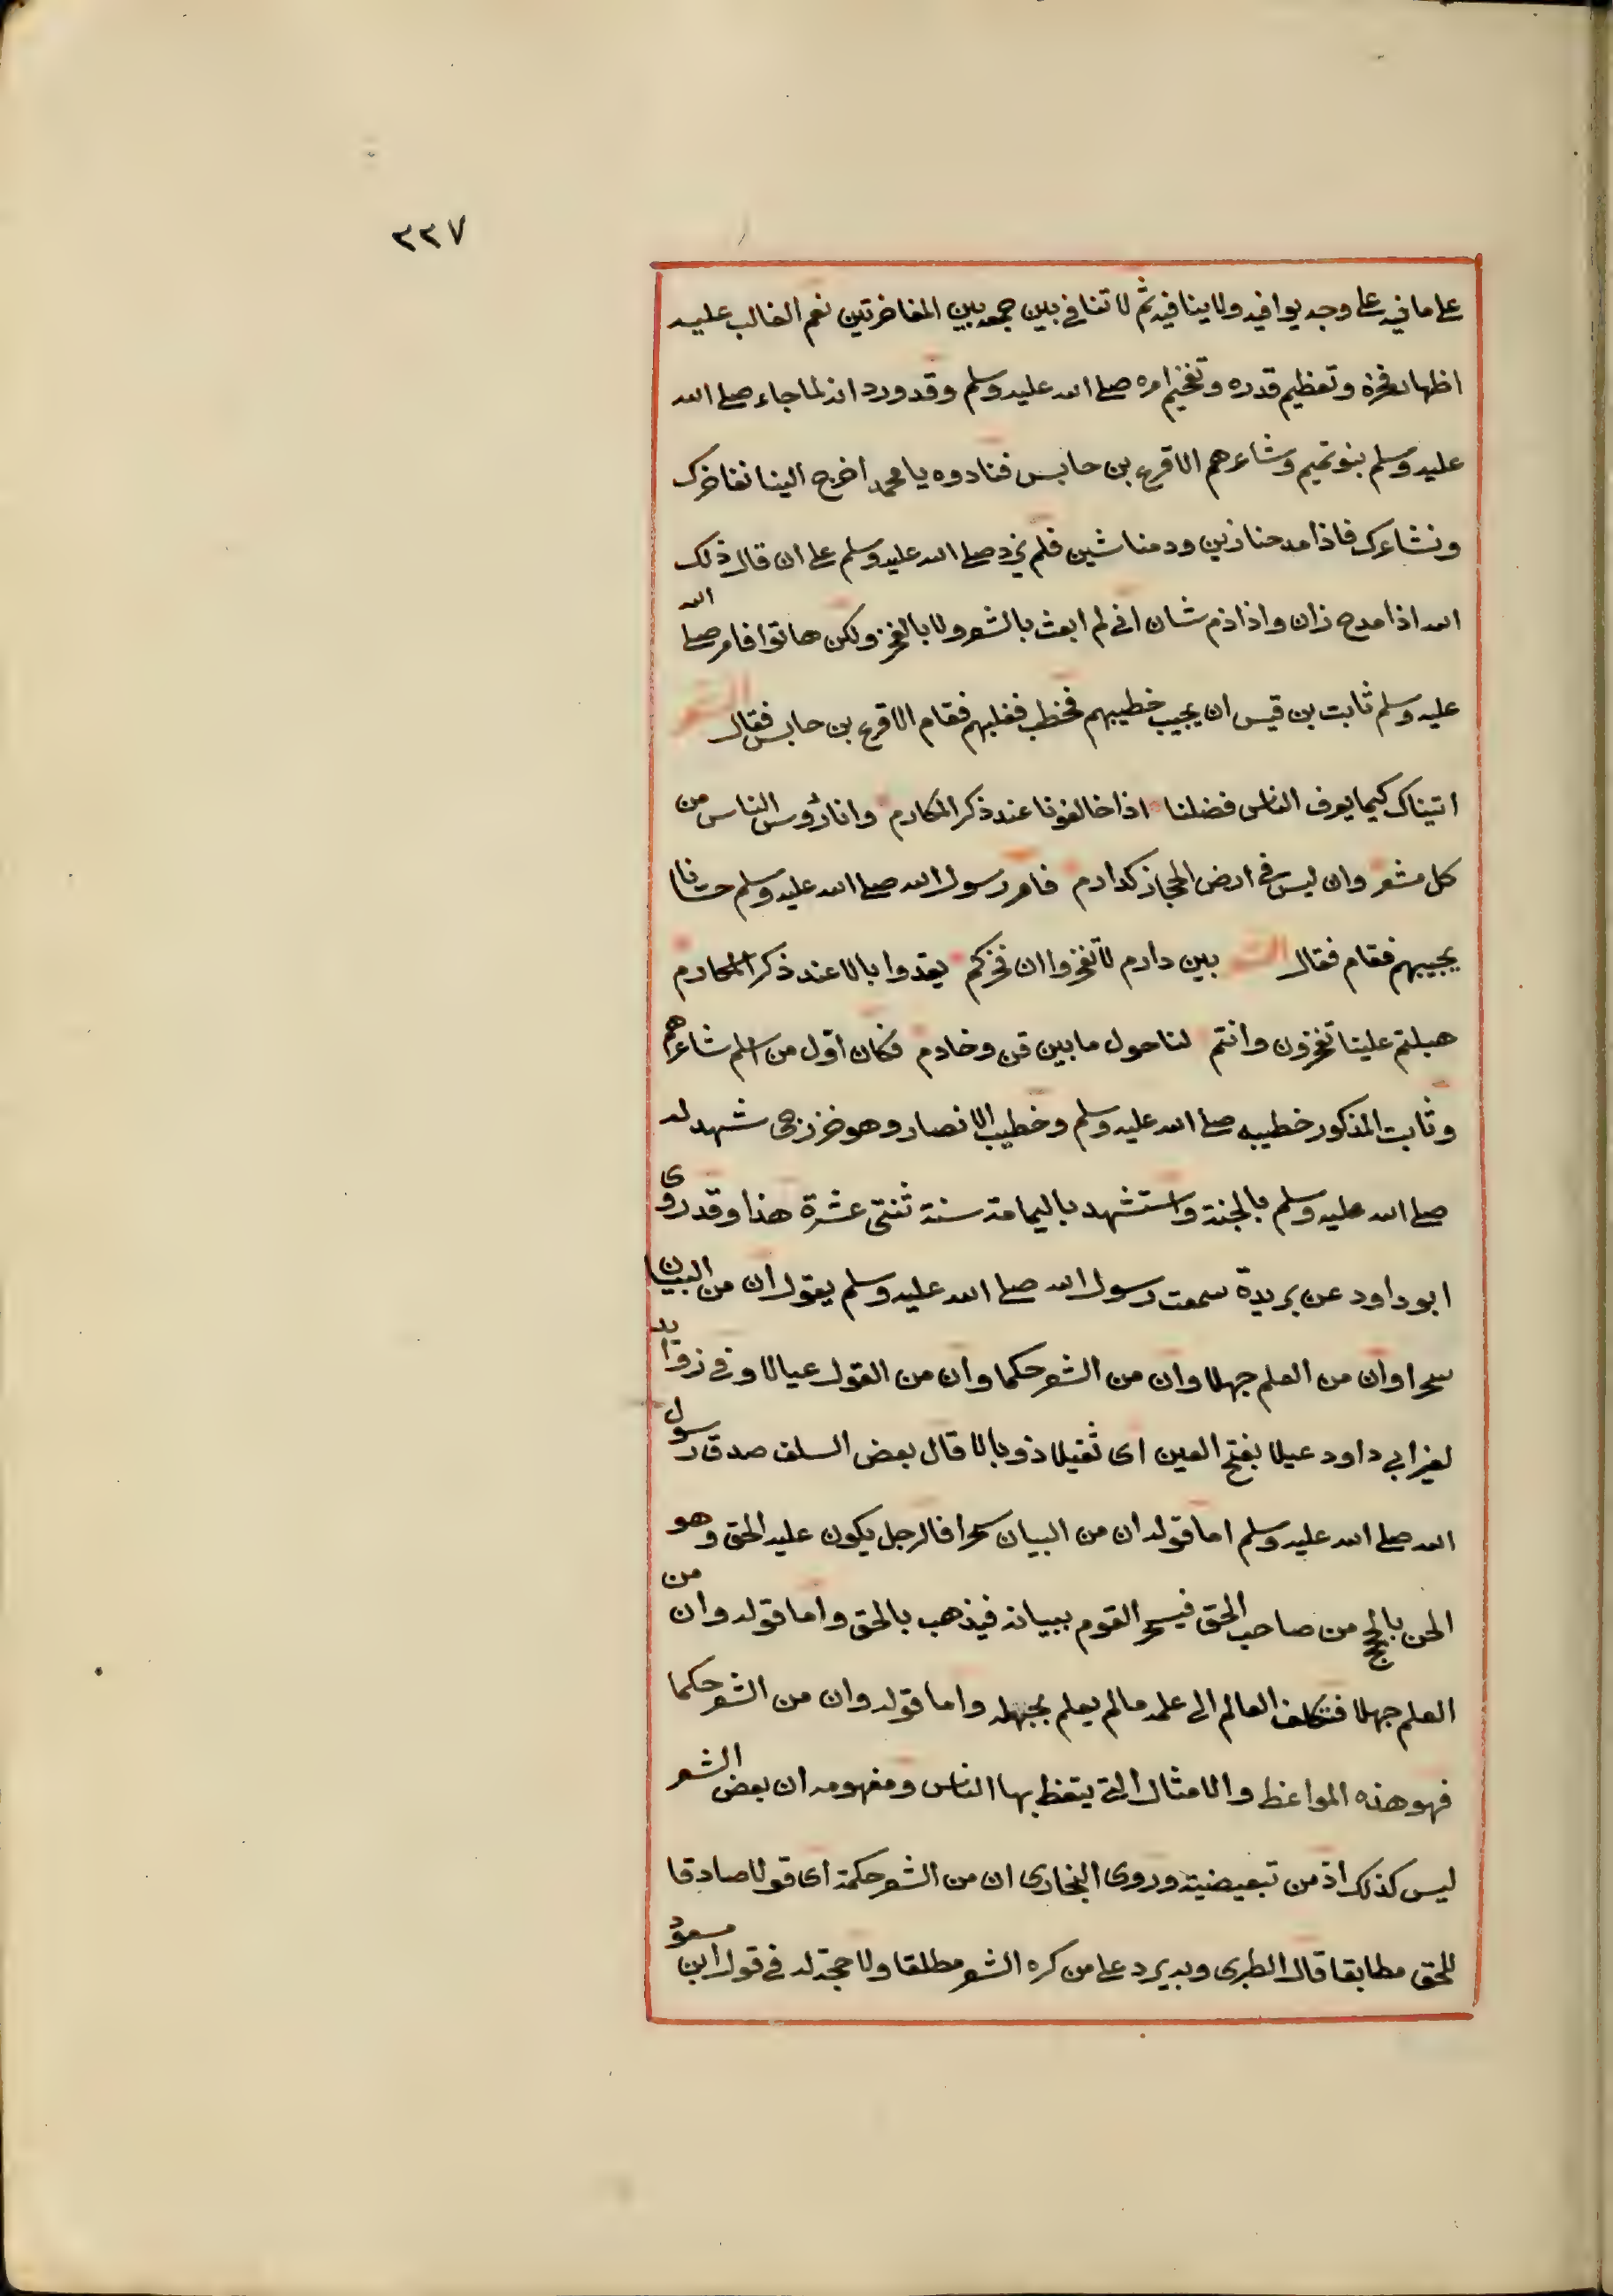 ٢٢٧
على ما فيه على وجه يوافيه ولا ينافيه ثم لا تنافي بين جمعه بين المفاخرتين نعم الغالب عليه
اظهار فخره وتعظيم قدره وتفخيم امره صلى الله عليه وسلم وقد ورد انه لما جاءه صلى الله
عليه وسلم بنو تميم وشاعرهم الاقرع بن حابس فنادوه يا محمد اخرج الينا نفاخرك
ونشاعرك فاذا مدحنا زين وذمنا شين فلم يزد صلى الله عليه وسلم على ان قال ذلك
الله اذا مدح زان واذا ذم شان اني لم ابعث بالشعر ولا بالفخر ولكن هاتوا فامر صلى الله
عليه وسلم ثابت بن قيس ان يجيب خطيبهم فخطب فغلبهم فقام الاقرع بن حابس فقال الشعر
اتيناك كيما يعرف الناس فضلنا اذا خالفونا عند ذكر المكارم وانا رؤس الناس من
كل مشعر وان ليس في ارض الحجاز كدارم فامر رسول الله صلى الله عليه وسلم حسانا
يجيبهم فقام فقال الشعر بين دارم لا تفخروا ان فخركم يعدوا بالا عند ذكر المكارم
هبلتم علينا تفخرون وانتم لنا حول ما بين قن وخادم فكان اول من اسلم شاعرهم
وثابت المذكور خطيبه صلى الله عليه وسلم وخطيب الانصار وهو خزرجى شهد له
صلى الله عليه وسلم بالجنة واستشهد باليمامة سنة ثنتى عشرة هذا وقد روى
ابو داود عن بريدة سمعت رسول الله صلى الله عليه وسلم يقول ان من البيان
سحرا وان من العلم جهلا وان من الشعر حكما وان من القول عيالا وفي زوايد
لغير ابي داود عيلا بفتح العين اى ثقيلا ذو بالا قال بعض السلف صدق رسول
الله صلى الله عليه وسلم اما قوله ان من البيان سحرا فالرجل يكون عليه الحق وهو
الحن بالحجج من صاحب الحق فيسحر القوم ببيانه فيذهب بالحق واما قوله وان من
العلم جهلا فتكلف العالم الى علمه مالم يعلم بجهله واما قوله وان من الشعر حكما
فهو هذه المواعظ والامثال التي يتعظ بها الناس ومفهومه ان بعض الشعر
ليس كذلك اذ من تبعيضية وروى البخارى ان من الشعر حكمة اى قولا صادقا
للحق مطابقا قال الطبرى وبه يرد على من كره الشعر مطلقا ولا حجة له في قول ابن مسعود